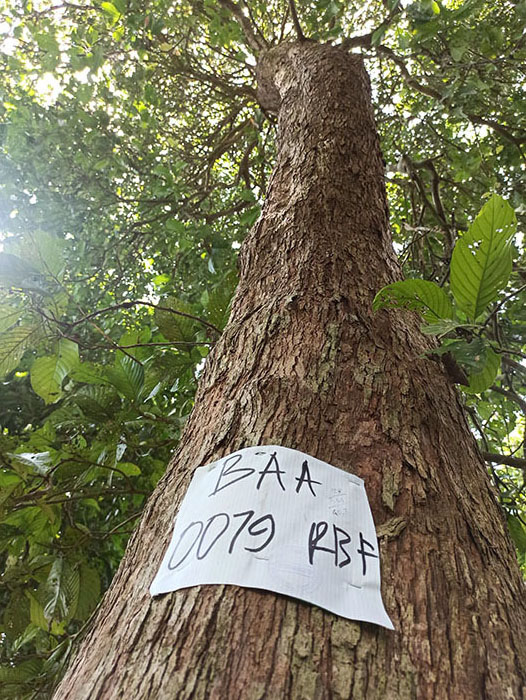 BAA
0079 RBF